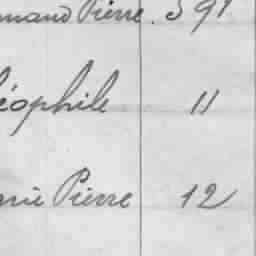 mand Pierre. 391
éophile 11
rie Pierre 12